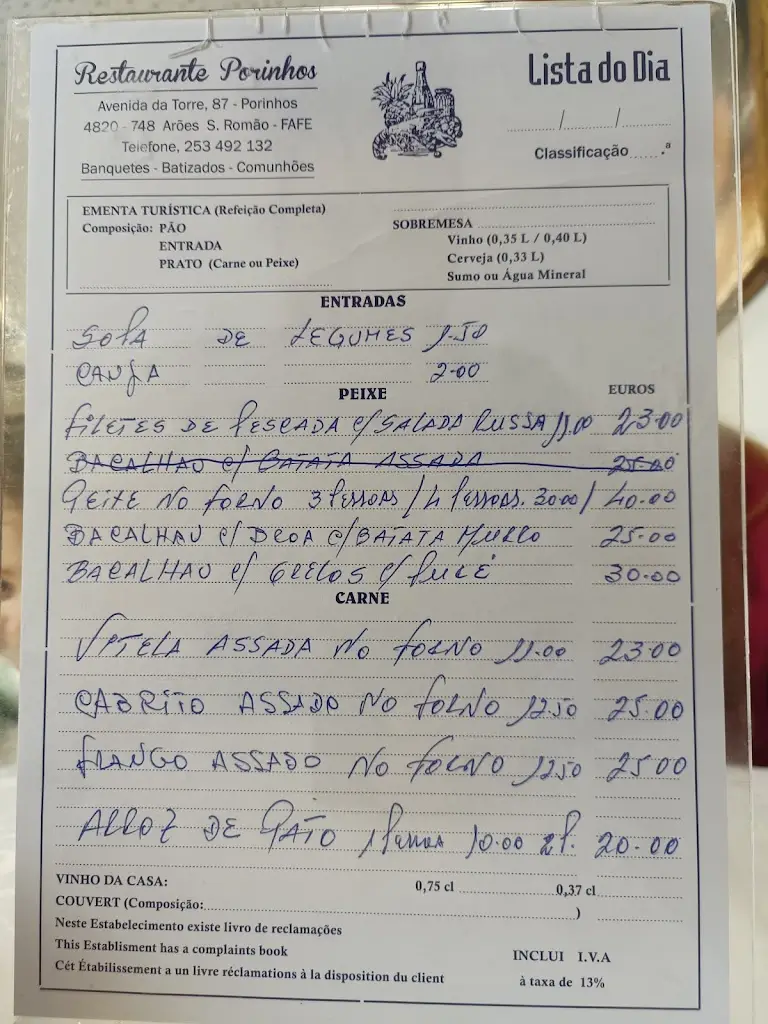 Restaurante Porinhos
Avenida da Torre, 87 - Porinhos
4820 - 748 Arões S. Romão - FAFE
Telefone, 253 492 132
Banquetes - Batizados - Comunhões
Lista do Dia
......../......../........
Classificação.......ª
EMENTA TURÍSTICA (Refeição Completa)
Composição: PÃO
ENTRADA
PRATO (Carne ou Peixe)
SOBREMESA
Vinho (0,35 L / 0,40 L)
Cerveja (0,33 L)
Sumo ou Água Mineral
ENTRADAS
SOPA DE LEGUMES 1.50
CANJA 2.00
PEIXE EUROS
FILETES DE PESCADA C/SALADA RUSSA 11.00 23.00
BACALHAU C/ BATATA ASSADA 25.00
PEIXE NO FORNO 3 PESSOAS / 4 PESSOAS. 30.00 / 40.00
BACALHAU C/ BROA C/BATATA MURRO 25.00
BACALHAU C/ GRELOS C/ PURÉ 30.00
CARNE
VITELA ASSADA NO FORNO 11.00 23.00
CABRITO ASSADO NO FORNO 12.50 25.00
FRANGO ASSADO NO FORNO 12.50 25.00
ARROZ DE PATO 1 PESSOA 10.00 2P. 20.00
VINHO DA CASA: 0,75 cl 0,37 cl
COUVERT (Composição: )
Neste Estabelecimento existe livro de reclamações
This Establisment has a complaints book
Cét Établissement a un livre réclamations à la disposition du client
INCLUI I.V.A
à taxa de 13%